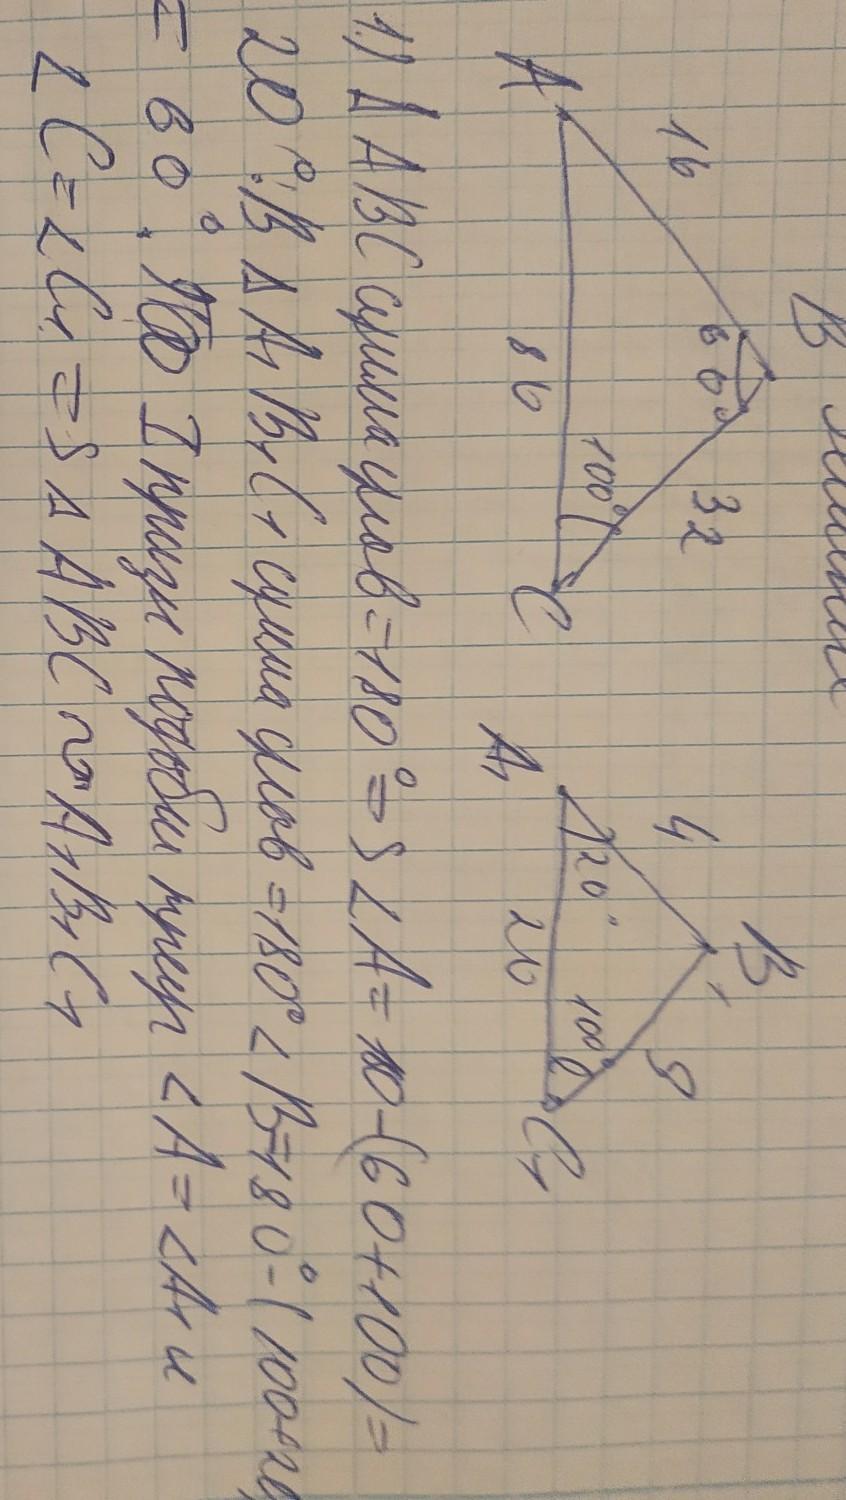 B
16
60°
32
A
86
100°
C
B1
4
9
A1
20°
26
100°
C1
1) Δ ABC сумма углов = 180° => ∠A = 180-(60+100)=
20°. В Δ A1B1C1 сумма углов = 180° ∠B=180°-(100+20)
= 60°. По I призн подобия треуг ∠A = ∠A1 и
∠C = ∠C1 => Δ ABC ~ A1B1C1